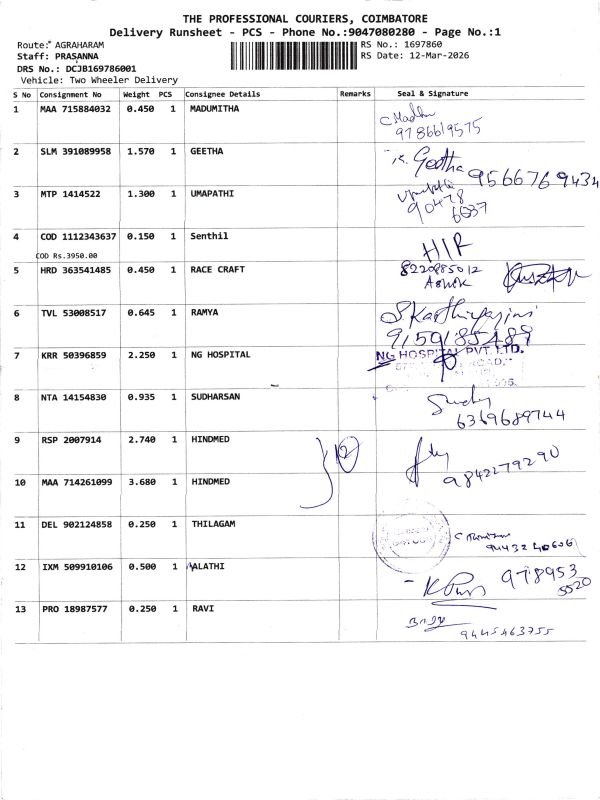 THE PROFESSIONAL COURIERS, COIMBATORE
Delivery Runsheet - PCS - Phone No.:9047080280 - Page No.:1
Route: AGRAHARAM
Staff: PRASANNA
DRS No.: DCJB169786001
Vehicle: Two Wheeler Delivery
RS No.: 1697860
RS Date: 12-Mar-2026
S No Consignment No Weight PCS Consignee Details Remarks Seal & Signature
1 MAA 715884032 0.450 1 MADUMITHA
9786619575
2 SLM 391089958 1.570 1 GEETHA Geetha 9566769434
3 MTP 1414522 1.300 1 UMAPATHI
90478
6637
4 COD 1112343637 0.150 1 Senthil H/R
COD Rs.3950.00
5 HRD 363541485 0.450 1 RACE CRAFT 8220985012
Ashok
6 TVL 53008517 0.645 1 RAMYA S.Karthiyayini
9159185489
7 KRR 50396859 2.250 1 NG HOSPITAL NG HOSPITAL PVT. LTD.
ROAD,
8 NTA 14154830 0.935 1 SUDHARSAN
6369689744
9 RSP 2007914 2.740 1 HINDMED 9842279290
10 MAA 714261099 3.680 1 HINDMED
11 DEL 902124858 0.250 1 THILAGAM
12 IXM 509910106 0.500 1 ALATHI 978953
5520
13 PRO 18987577 0.250 1 RAVI
9445463755